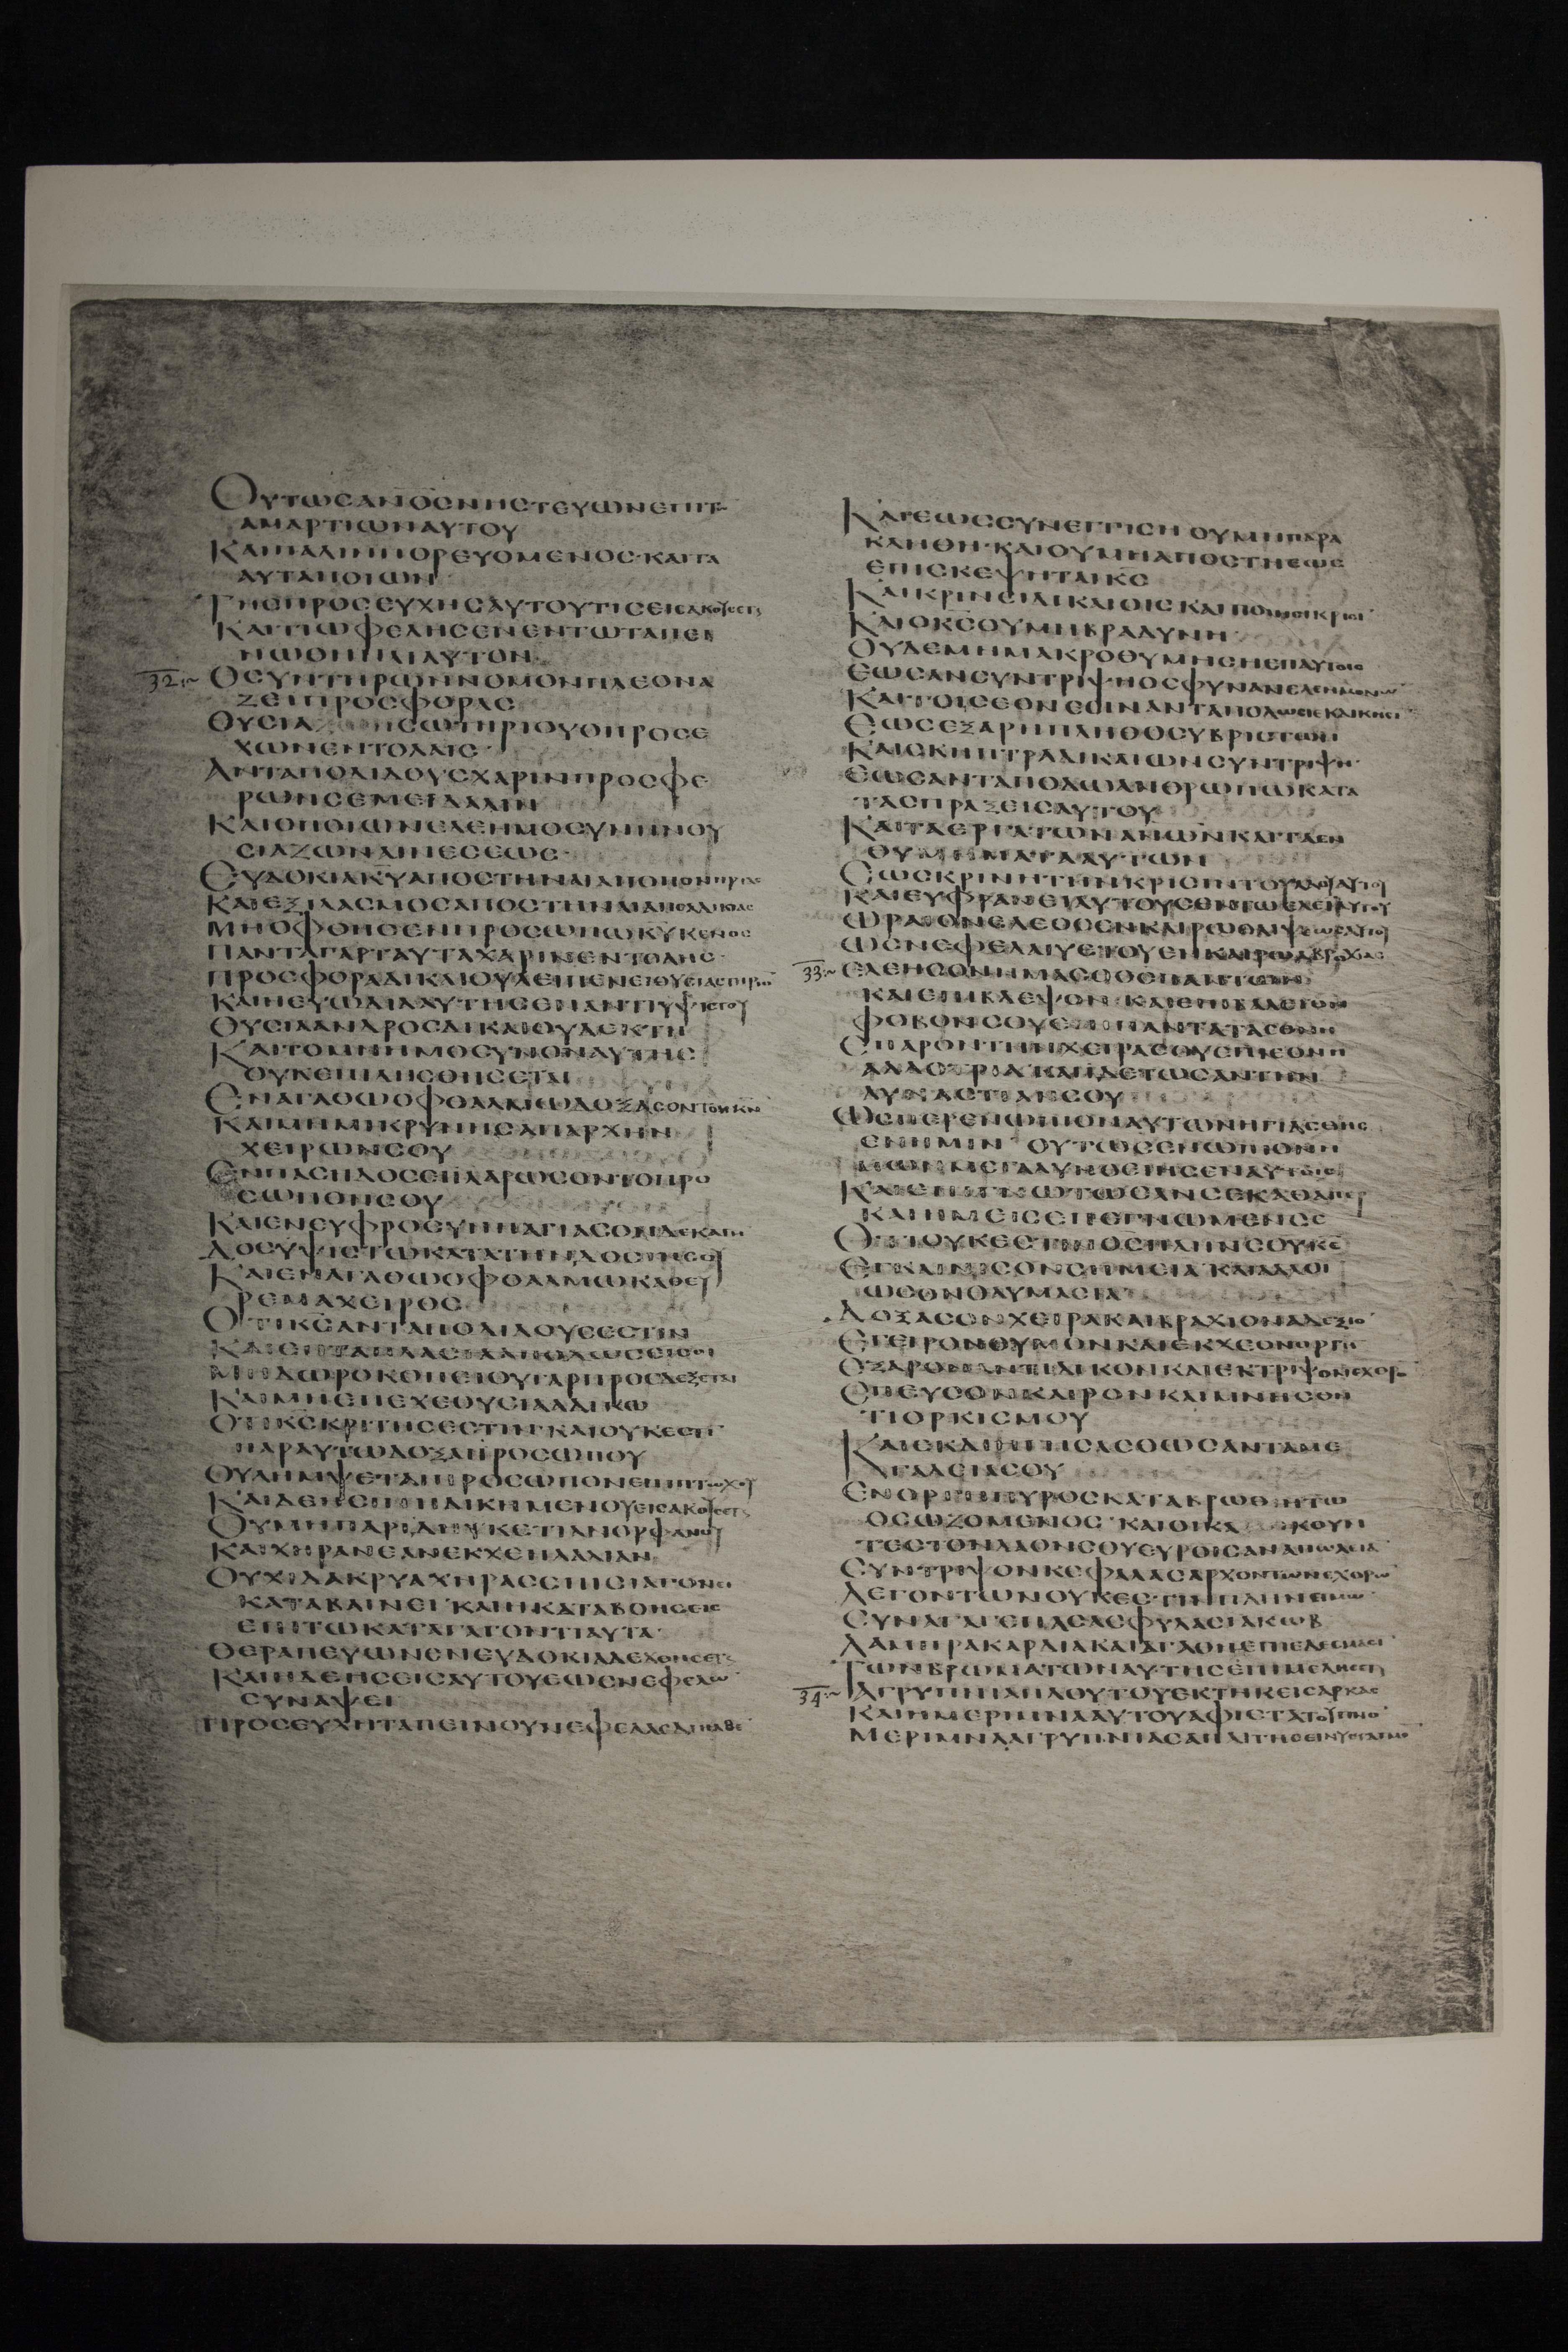 ΟΥΤΩϹΑΝΟϹΝΗϹΤΕΥΩΝΕΠΙΤ
ΑΜΑΡΤΙΩΝΑΥΤΟΥ
ΚΑΙΠΑΛΙΝΠΟΡΕΥΟΜΕΝΟϹ·ΚΑΙΤΑ
ΑΥΤΑΠΟΙΩΝ
ΤΗϹΠΡΟϹΕΥΧΗϹΑΥΤΟΥΤΙϹΕΙϹΑΚΟΥϹΕΤΑΙ
ΚΑΙΤΙΩΦΕΛΗϹΕΝΕΝΤΩΤΑΠΕΙ
ΝΩΘΗΝΑΙΑΥΤΟΝ
32 ΟϹΥΝΤΗΡΩΝΝΟΜΟΝΠΛΕΟΝΑ
ΖΕΙΠΡΟϹΦΟΡΑϹ
ΘΥϹΙΑ ϹΩΤΗΡΙΟΥΟΠΡΟϹΕ
ΧΩΝΕΝΤΟΛΑΙϹ
ΑΝΤΑΠΟΔΙΔΟΥϹΧΑΡΙΝΠΡΟϹΦΕ
ΡΩΝϹΕΜΕΙΔΑΛΙΝ
ΚΑΙΟΠΟΙΩΝΕΛΕΗΜΟϹΥΝΗΝΘΥ
ϹΙΑΖΩΝΑΙΝΕϹΕΩϹ
ΕΥΔΟΚΙΑΚΥΑΠΟϹΤΗΝΑΙΑΠΟΠΟΝΗΡΙΑϹ
ΚΑΙΕΞΙΛΑϹΜΟϹΑΠΟϹΤΗΝΑΙΑΠΟΑΔΙΚΙΑϹ
ΜΗΟΦΘΗϹΕΝΠΡΟϹΩΠΩΚΥΚΕΝΟϹ
ΠΑΝΤΑΓΑΡΤΑΥΤΑΧΑΡΙΝΕΝΤΟΛΗϹ
ΚΑΙΗΕΥΩΔΙΑΑΥΤΗϹΕΠΑΝΤΙΥΨΙϹΤΟΥ
ΘΥϹΙΑΑΝΔΡΟϹΔΙΚΑΙΟΥΔΕΚΤΗ
ΚΑΙΤΟΜΝΗΜΟϹΥΝΟΝΑΥΤΗϹ
ΟΥΚΕΠΙΛΗϹΘΗϹΕΤΑΙ
ΚΑΙΜΗΜΗΚΡΥΝΗϹΑΠΑΡΧΗΝ
ΧΕΙΡΩΝϹΟΥ
ΕΝΠΑϹΗΔΟϹΕΙΙΛΑΡΩϹΟΝΤΟΠΡΟ
ϹΩΠΟΝϹΟΥ
ΚΑΙΕΝΕΥΦΡΟϹΥΝΗΑΓΙΑϹΟΝΔΕΚΑΤΗ
ΔΟϹΥΨΙϹΤΩΚΑΤΑΤΗΝΔΟϹΙΝϹΟΥ
ΚΑΙΕΝΑΓΑΘΩΟΦΘΑΛΜΩΚΑΘΕΥ
ΡΕΜΑΧΕΙΡΟϹ
ΟΤΙΚϹΑΝΤΑΠΟΔΙΔΟΥϹΕϹΤΙΝ
ΚΑΙΕΠΤΑΠΛΑϹΙΑΑΠΟΔΩϹΕΙϹΟΙ
ΜΗΔΩΡΟΚΟΠΕΙΟΥΓΑΡΠΡΟϹΔΕΞΕΤΑΙ
ΚΑΙΜΗΕΠΕΧΕΘΥϹΙΑΑΔΙΚΩ
ΟΤΙΚϹΚΡΙΤΗϹΕϹΤΙΝ·ΚΑΙΟΥΚΕϹΤΙ
ΠΑΡΑΥΤΩΔΟΞΑΠΡΟϹΩΠΟΥ
ΟΥΛΗΜΨΕΤΑΙΠΡΟϹΩΠΟΝΕΠΙΠΤΩΧΟΥ
ΚΑΙΔΕΗϹΙΝΗΔΙΚΗΜΕΝΟΥΕΙϹΑΚΟΥϹΕΤΑΙ
ΟΥΜΗΠΑΡΙΔΗΙΚΕΤΙΑΝΟΡΦΑΝΟΥ
ΚΑΙΧΗΡΑΝΕΑΝΕΚΧΕΗΛΑΛΙΑΝ
ΟΥΧΙΔΑΚΡΥΑΧΗΡΑϹΕΠΙϹΙΑΓΟΝΑ
ΚΑΤΑΒΑΙΝΕΙ·ΚΑΙΗΚΑΤΑΒΟΗϹΕΙϹ
ΕΠΙΤΩΚΑΤΑΓΑΓΟΝΤΙΑΥΤΑ
ΘΕΡΑΠΕΥΩΝΕΝΕΥΔΟΚΙΑΔΕΧΘΗϹΕΤΑΙ
ΚΑΙΗΔΕΗϹΕΙϹΑΥΤΟΥΕΩϹΝΕΦΕΛΩ
ϹΥΝΑΨΕΙ
ΠΡΟϹΕΥΧΗΤΑΠΕΙΝΟΥΝΕΦΕΛΑϹΔΙΗΛΘΕ
ΚΑΙΕΩϹϹΥΝΕΓΓΙϹΗΟΥΜΗΠΑΡΑ
ΚΛΗΘΗ·ΚΑΙΟΥΜΗΑΠΟϹΤΗΕΩϹ
ΕΠΙϹΚΕΨΗΤΑΙΚϹ
ΚΑΙΟΚϹΟΥΜΗΒΡΑΔΥΝΗ
ΟΥΔΕΜΗΜΑΚΡΟΘΥΜΗϹΗΕΠΑΥΤΟΙϹ
ΕΩϹΑΝϹΥΝΤΡΙΨΗΟϹΦΥΝΑΝΕΛΕΗΜΟΝΩ
ΚΑΙΤΟΙϹΕΘΝΕϹΙΝΑΝΤΑΠΟΔΩϹΕΙΕΚΔΙΚΗϹΙ
ΕΩϹΕΞΑΡΗΠΛΗΘΟϹΥΒΡΙϹΤΩΝ
ΚΑΙϹΚΗΠΤΡΑΑΔΙΚΑΙΩΝϹΥΝΤΡΙΨΗ
ΕΩϹΑΝΤΑΠΟΔΩΑΝΘΡΩΠΩΚΑΤΑ
ΤΑϹΠΡΑΞΕΙϹΑΥΤΟΥ
ΚΑΙΤΑΕΡΓΑΤΩΝΑΝΩΝΚΑΤΑΕΝ
ΘΥΜΗΜΑΤΑΑΥΤΩΝ
ΕΩϹΚΡΙΝΗΤΗΝΚΡΙϹΙΝΤΟΥΛΑΟΥΑΥΤΟΥ
33 ΕΛΕΗϹΟΝΗΜΑϹΟΘϹΠΑΝΤΩΝ
ΚΑΙΕΠΙΒΛΕΨΟΝ·ΚΑΙΕΠΙΒΑΛΕΤΟΝ
ΦΟΒΟΝϹΟΥΕΠΙΠΑΝΤΑΤΑΕΘΝΗ
ΕΠΑΡΟΝΤΗΝΧΕΙΡΑϹΟΥΕΠΙΕΘΝΗ
ΑΛΛΟΤΡΙΑ·ΚΑΙΙΔΕΤΩϹΑΝΤΗΝ
ΔΥΝΑϹΤΙΑΝϹΟΥ
ΩϹΠΕΡΕΝΩΠΙΟΝΑΥΤΩΝΗΓΙΑϹΘΗϹ
ΕΝΗΜΙΝ ΟΥΤΩϹΕΝΩΠΙΟΝΗ
ΜΩΝΜΕΓΑΛΥΝΘΕΙΗϹΕΝΑΥΤΟΙϹ
ΟΤΙΟΥΚΕϹΤΙΝΘϹΠΛΗΝϹΟΥΚΕ
ΕΓΚΑΙΝΙϹΟΝϹΗΜΕΙΑ·ΚΑΙΑΛΛΟΙ
ΩϹΟΝΘΑΥΜΑϹΙΑ
ΔΟΞΑϹΟΝΧΕΙΡΑΚΑΙΒΡΑΧΙΟΝΑΔΕΞΙΟ
ΕΓΕΙΡΟΝΘΥΜΟΝΚΑΙΕΚΧΕΟΝΟΡΓΗ
ΕΞΑΡΟΝΑΝΤΙΔΙΚΟΝΚΑΙΕΚΤΡΙΨΟΝΕΧΘΡΟ
ϹΠΕΥϹΟΝΚΑΙΡΟΝΚΑΙΜΝΗϹΘΗ
ΤΙΟΡΚΙϹΜΟΥ
ΓΑΛΕΙΑϹΟΥ
ΕΝΟΡΓΗΠΥΡΟϹΚΑΤΑΒΡΩΘΗΤΩ
ΟϹΩΖΟΜΕΝΟϹ·ΚΑΙΟΙΚΑ ΚΟΥΝ
ΤΕϹΤΟΝΛΑΟΝϹΟΥΕΥΡΟΙϹΑΝΑΠΩΛΕΙΑ
ϹΥΝΤΡΙΨΟΝΚΕΦΑΛΑϹΑΡΧΟΝΤΩΝΕΧΘΡΩ
ΛΕΓΟΝΤΩΝΟΥΚΕϹΤΙΝΠΛΗΝΗΜΩ
ϹΥΝΑΓΑΓΕΠΑϹΑϹΦΥΛΑϹΙΑΚΩΒ
ΛΑΜΠΡΑΚΑΡΔΙΑΚΑΙΑΓΑΘΗΕΠΙΕΔΕϹΜΑϹΙ
ΤΩΝΒΡΩΜΑΤΩΝΑΥΤΗϹΕΠΙΜΕΛΗϹΕΤΑΙ
34 ΑΓΡΥΠΝΙΑΠΛΟΥΤΟΥΕΚΤΗΚΕΙϹΑΡΚΑϹ
ΚΑΙΗΜΕΡΙΜΝΑΑΥΤΟΥΑΦΙϹΤΑΤΟΥΠΝΟ
ΜΕΡΙΜΝΑΑΓΡΥΠΝΙΑϹΑΠΑΙΤΗϹΕΙΝΥϹΤΑΓΜΟ